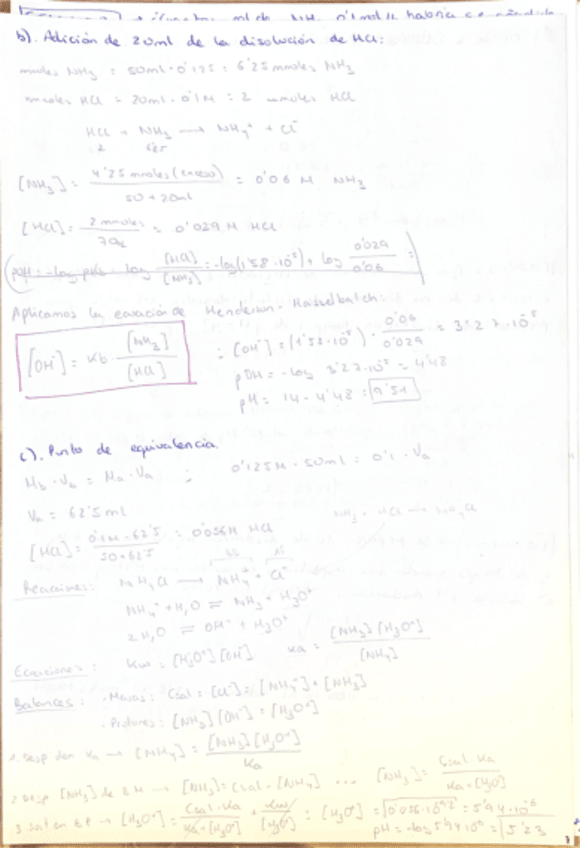 ml de NH3 0'1 mol/L habría
b). Adición de 20ml de la disolución de HCl:
mmoles NH3 = 50ml · 0'125 = 6'25 mmoles NH3
mmoles HCl = 20ml · 0'1M = 2 mmoles HCl
HCl + NH3 → NH4+ + Cl-
2 6'25
[NH3] = 4'25 mmoles (exceso) / 50+20ml = 0'06 M NH3
[HCl] = 2 mmoles / 70 = 0'029 M HCl
pOH = -log pKb + log [HCl]/[NH3] = -log(1'58·10-5) + log 0'029/0'06 =
Aplicamos la ecuación de Henderson-Hasselbatch:
[OH-] = Kb · [NH3]/[HCl] : [OH-] = (1'58·10-5) · 0'06/0'029 = 3'27·10-5
pOH = -log 3'27·10-5 = 4'48
pH = 14 - 4'48 = 9'51
c). Punto de equivalencia.
Mb · Vb = Ma · Va : 0'125M · 50ml = 0'1 · Va
Va = 62'5 ml
NH3 + HCl → NH4Cl
[HCl] = 0'1M · 62'5 / 50+62'5 = 0'056M HCl
Reacciones: NH4Cl → NH4+ + Cl-
NH4+ + H2O ⇌ NH3 + H3O+
2H2O ⇌ OH- + H3O+
Ecuaciones: Kw = [H3O+][OH-] Ka = [NH3][H3O+]/[NH4]
Balances: · Masas: Csal = [Cl-] = [NH4+] + [NH3]
· Protones: [NH3][OH-] = [H3O+]
1. Desp den Ka → [NH4] = [NH3][H3O+]/Ka
2. Desp [NH3] de BM → [NH3] = Csal - [NH4] ... [NH3] = Csal · Ka / Ka+[H3O+]
3. Sust en BP → [H3O+] = Csal · Ka / Ka+[H3O+] + Kw/[H3O+] : [H3O+] = = 5'94·10-6
pH = -log 5'94·10-6 = 5'23